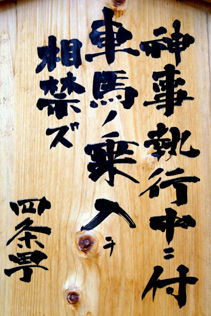 神事執行中ニ付
車馬ノ乗入ヲ
相禁ズ
四条町